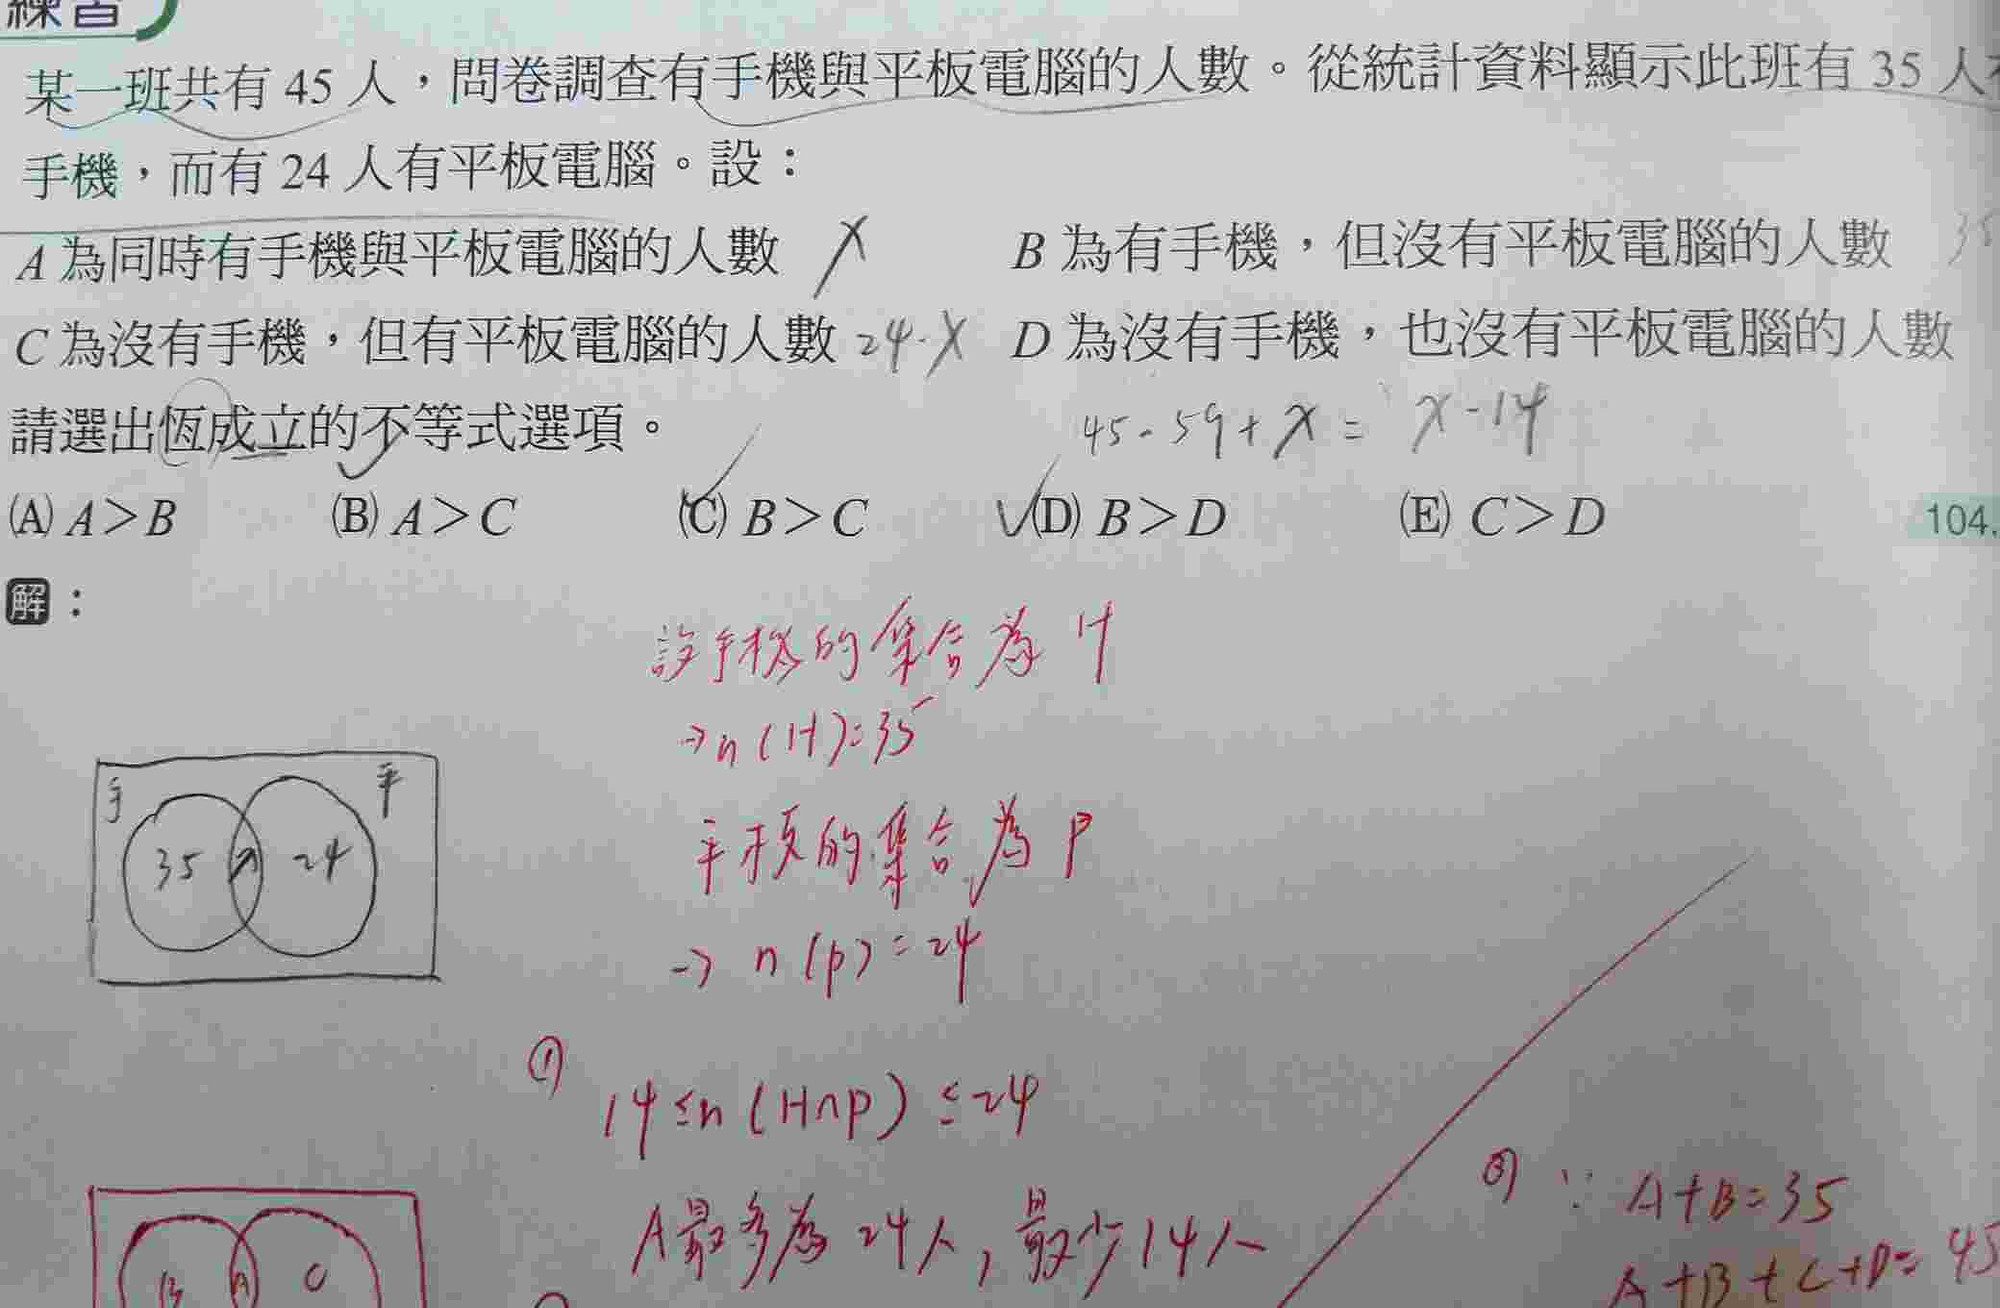 練習
某一班共有 45 人，問卷調查有手機與平板電腦的人數。從統計資料顯示此班有 35 人有
手機，而有 24 人有平板電腦。設：
A 為同時有手機與平板電腦的人數 x B 為有手機，但沒有平板電腦的人數 35
C 為沒有手機，但有平板電腦的人數 24-x D 為沒有手機，也沒有平板電腦的人數
請選出恆成立的不等式選項。 45-59+x = x-14
(A) A＞B (B) A＞C (C) B＞C (D) B＞D (E) C＞D 104.
解：
設手機的集合為 H
→n(H)=35
手 平
平板的集合為 P
35 x 24
→ n(p)=24
①
14≤n(H∩P)≤24
③ ∵ A+B=35
A最多為 24人，最少14人
A+B+C+D=45
B A C